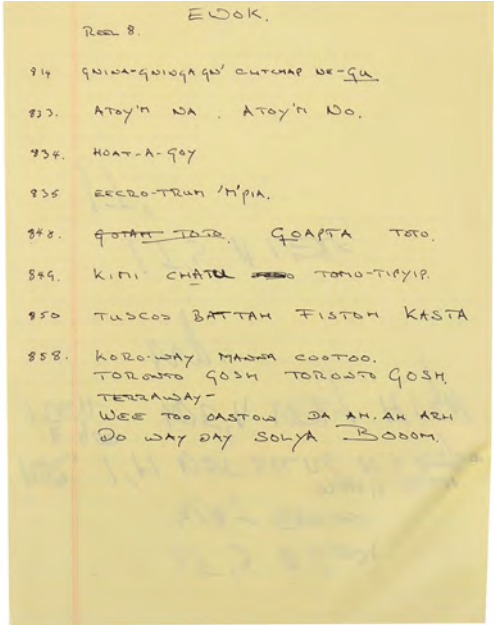 EWOK.
REEL 8.
814 GNINA-GNINGA GN' CUTCHAP NE-GU
833. ATOY'M NA. ATOY'M NO.
834. HOAT-A-GOY
835 EECRO-TRUM 'M'PIA.
848. GOTAM TOTO. GOAPTA TOTO.
849. KIMI CHATU TOMO-TIPYIP.
850 TUSCOS BATTAH FISTOM KASTA
858. KORO-WAY MANNA COOTOO.
TORONTO GOSH TORONTO GOSH.
TERRAWAY-
WEE TOO DASTOW DA AH. AH ARH
DO WAY DAY SOLYA BOOOM.